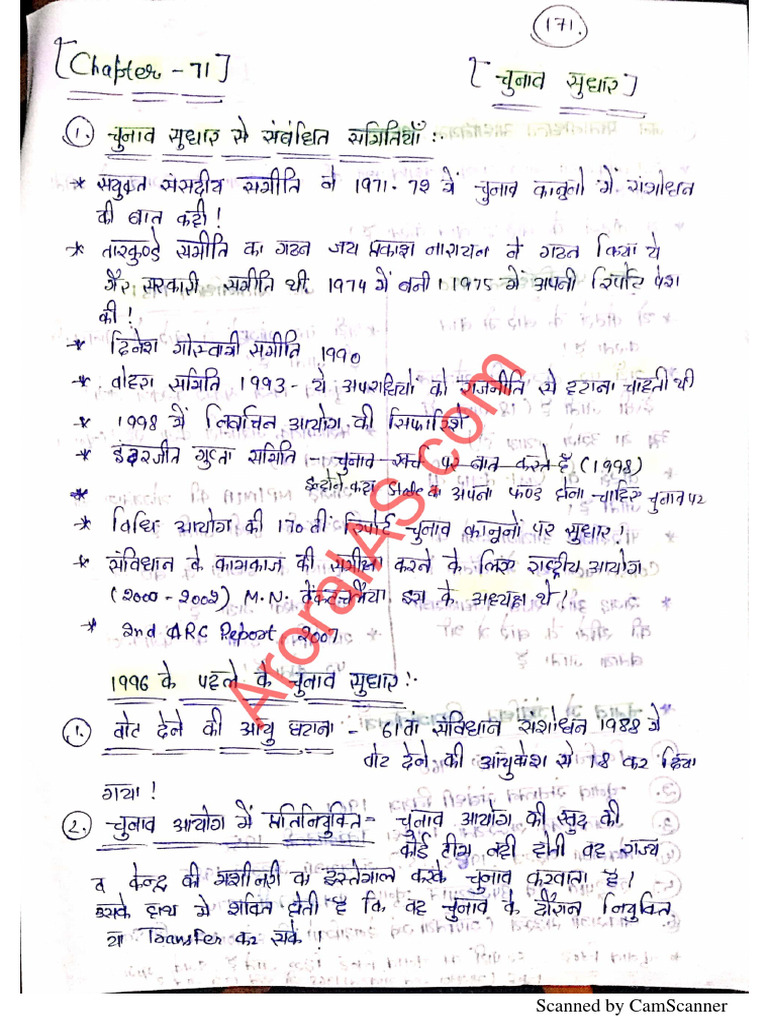 171.
[Chapter - 71] [चुनाव सुधार]
1. चुनाव सुधार से संबंधित समितियाँ :-
* सयुक्त संसदीय समीति ने 1971-72 में चुनाव कानुनो में संशोधन
की बात कही!
* तारकुण्डे समीति का गठन जय प्रकाश नारायन ने गठन किया ये
गैर सरकारी समीति थी 1974 में बनी। 1975 में अपनी रिपोर्ट पेश
की!
* दिनेश गोस्वामी समीति 1990
* वोहरा समिति 1993 - ये अपराधियो को राजनीति से हटाना चाहती थी
* 1998 में निर्वाचन आयोग की सिफारिशे
* इंद्रजीत गुप्ता समिति - चुनाव खर्च पर बात करते है (1998)
* इन्होने कहा State का अपना फण्ड होना चाहिए चुनाव पर
* विधि आयोग की 170 वीं रिपोर्ट चुनाव कानुनो पर सुधार!
* संविधान के कामकाज की समीक्षा करने के लिए राष्ट्रीय आयोग
(2000 - 2002) M.N. वेंकटचलैया इस के अध्यक्ष थे।
* 2nd ARC Report 2007
1996 के पहले के चुनाव सुधार :-
1. वोट देने की आयु घटाना - 61वां संविधान संशोधन 1988 मे
वोट देने की आयु 21 से 18 कर दिया
गया!
2. चुनाव आयोग में प्रतिनियुक्ति - चुनाव आयोग की खुद की
कोई टीम नही होती वह राज्य
व केन्द्र की मशीनरी का इस्तेमाल करके चुनाव करवाता है।
उसके हाथ मे शक्ति होती है कि वह चुनाव के दौरान नियुक्ति
या Transfer कर सके!
AroraIAS.com
Scanned by CamScanner